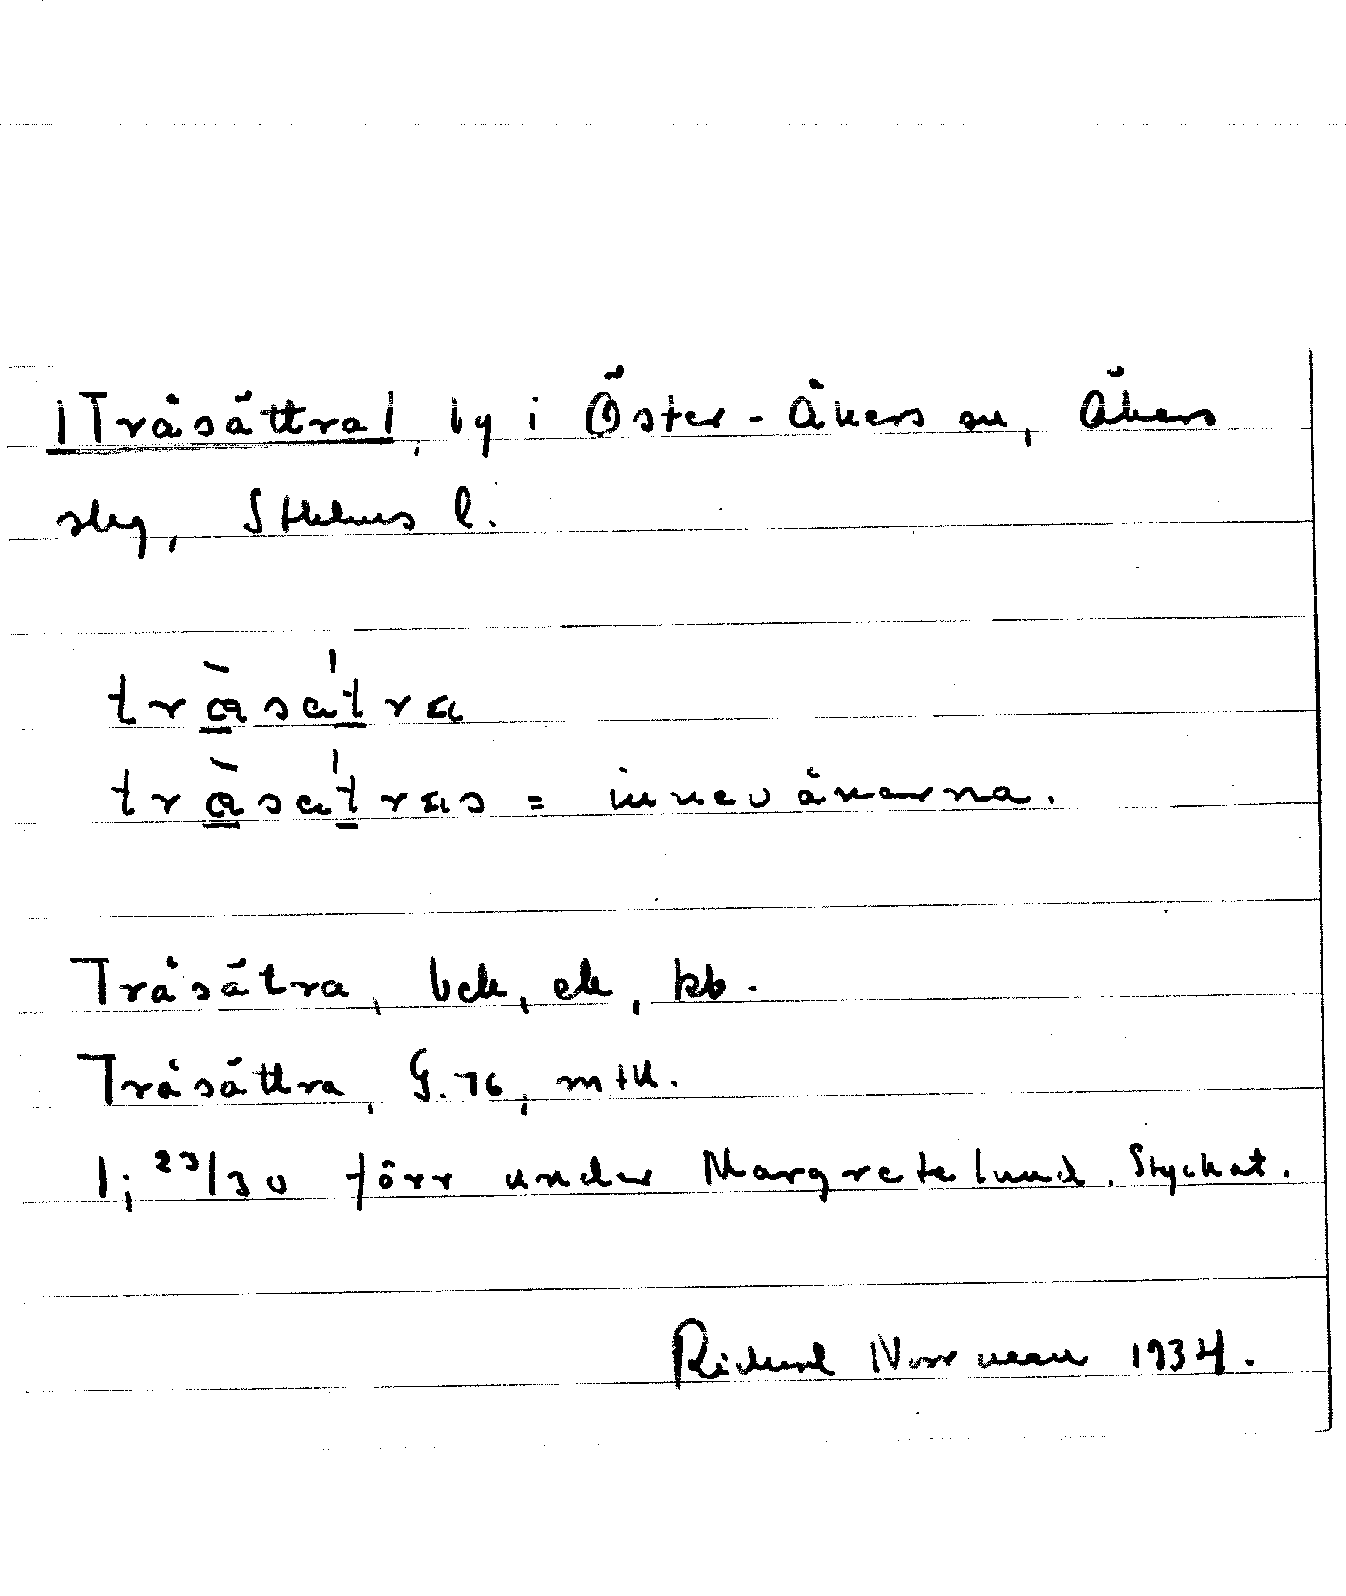 |Tråsättra|, by i Öster-Åkers sn, Åkers
skg, Sthlms l.
tràsat́ra
tràsat́ras = innevånarna.
Tråsätra, bek, ek, kb.
Tråsättra, G. 76, mtk.
1; 23/30 förr under Margretelund. Styckat.
Richard Norrman 1934.